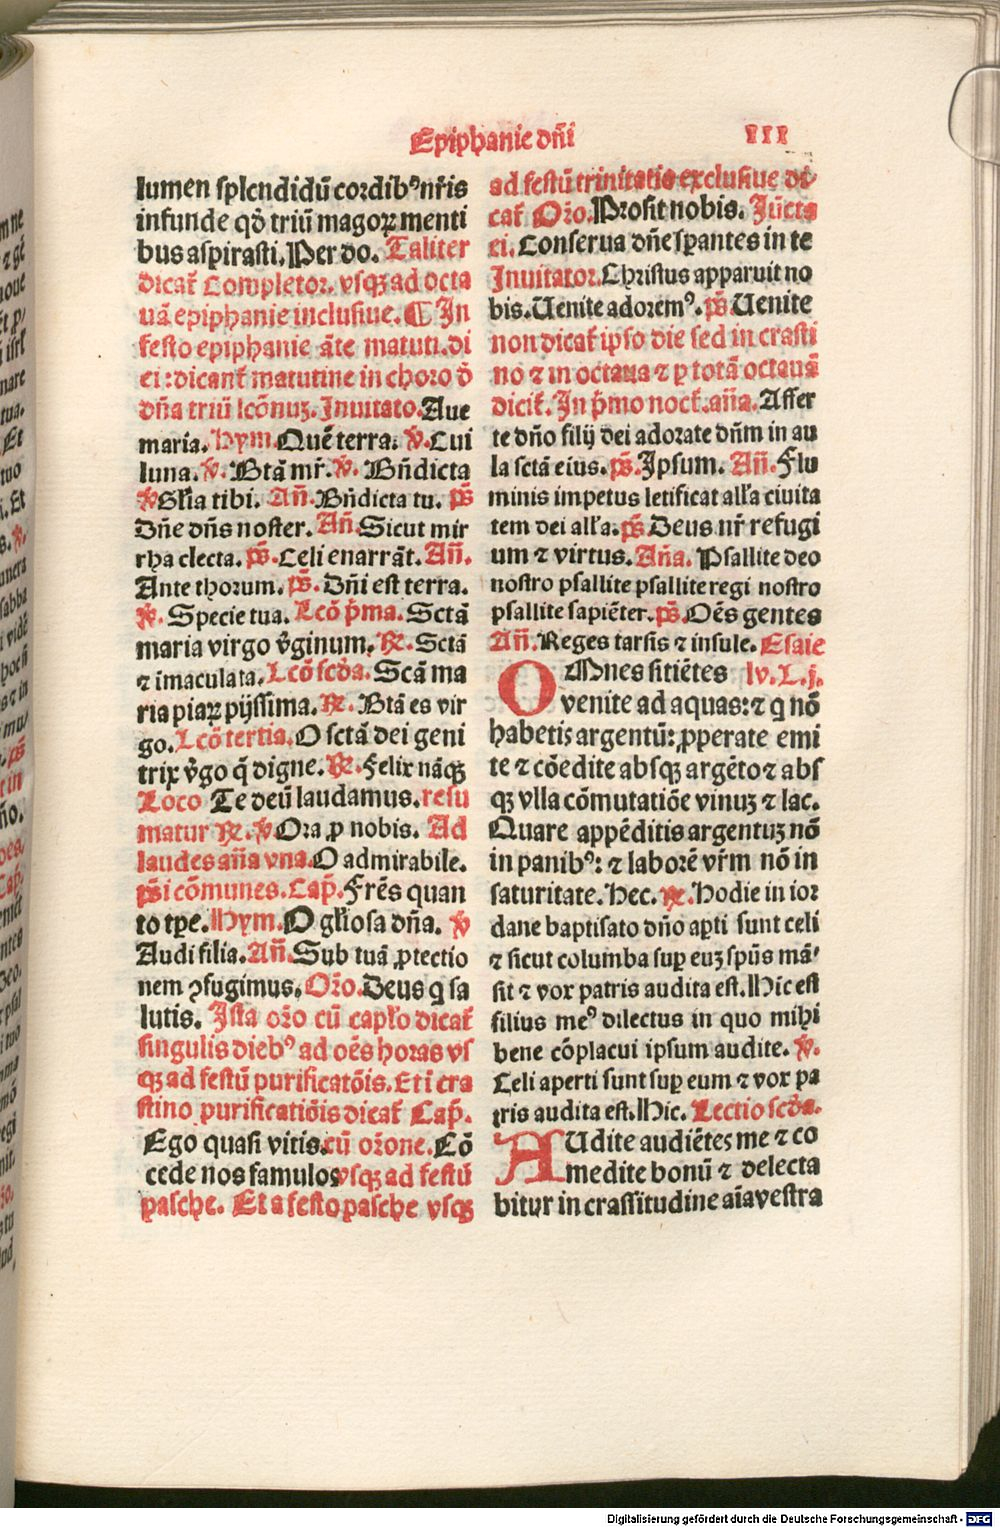 Epiphanie dñi III
lumen splendidū cordibꝰ nr̄is
infunde qđ triū magoꝝ menti
bus aspirasti. Per do. Taliter
dicat̄ Completor. vsqꝫ ad octa
uā epiphanie inclusiue. ¶ In
festo epiphanie āte matuti. di
ei: dicant̄ matutine in choro đ
dn̄a triū lcōnuꝫ. Inuitato. Aue
maria. Hym. Quē terra. ℣. Cui
luna. ℣. Btā mr̄. ℣. Bn̄dicta
℣ Gl̄ia tibi. An̄. Bn̄dicta tu. p̄s
Dn̄e dn̄s noster. An̄. Sicut mir
rha electa. p̄s. Celi enarrāt. An̄.
Ante thorum. p̄s. Dn̄i est terra.
℣. Specie tua. Lcō p̄ma. Sctā
maria virgo v̄ginum. ℞. Sctā
⁊ imaculata. Lcō scđa. Scā ma
ria piaꝝ pijssima. ℞. Btā es vir
go. Lcō tertia. O sctā dei geni
trix v̄go q̄ digne. ℞. Felix nāqꝫ
Loco Te deū laudamus. resu
matur ℞. ℣ Ora ꝓ nobis. Ad
laudes an̄a vna. O admirabile.
p̄si cōmunes. Cap̄. Frēs quan
to tꝑe. Hym. O gl̄iosa dn̄a. ℣
Audi filia. An̄. Sub tuā ꝓtectio
nem ꝯfugimus. Or̄o. Deus q sa
lutis. Ista or̄o cū capl̄o dicat̄
singulis diebꝰ ad oēs horas vs
qꝫ ad festū purificatōis. Et i cra
stino purificatiōis dicat̄ Cap̄.
Ego quasi vitis. cū or̄one. Cō
cede nos famulos vsqꝫ ad festū
pasche. Et a festo pasche vsqꝫ
ad festū trinitatis exclusiue di
cat̄ Or̄o. Prosit nobis. Iūcta
ci. Conserua dn̄e sꝑantes in te
Inuitator. Christus apparuit no
bis. Uenite adoremꝰ. p̄s Uenite
non dicat̄ ipso die sed in crasti
no ⁊ in octaua ⁊ ꝑ totā octauā
dicit̄. In p̄mo noct̄. an̄a. Affer
te dn̄o filij dei adorate dn̄m in au
la sctā eius. p̄s. Ipsum. An̄. Flu
minis impetus letificat all̄a ciuita
tem dei all̄a. p̄s Deus nr̄ refugi
um ⁊ virtus. An̄a. Psallite deo
nostro psallite psallite regi nostro
psallite sapiēter. p̄s. Oēs gentes
An̄. Reges tarsis ⁊ insule. Esaie
OMnes sitiētes lv. L. j.
venite ad aquas: ⁊ q nō
habetis argentū: ꝓperate emi
te ⁊ cōedite absqꝫ argēto ⁊ abs
qꝫ vlla cōmutatiōe vinuꝫ ⁊ lac.
Quare appēditis argentuꝫ nō
in panibꝰ: ⁊ laborē vr̄m nō in
saturitate. Hec. ℞. Hodie in ior
dane baptisato dn̄o aꝑti sunt celi
⁊ sicut columba suꝑ euꝫ spūs mā
sit ⁊ vox patris audita est. Hic est
filius meꝰ dilectus in quo mihi
bene cōplacui ipsum audite. ℣.
Celi aperti sunt suꝑ eum ⁊ vox pa
tris audita est. Hic. Lectio scđa.
AUdite audiētes me ⁊ co
medite bonū ⁊ delecta
bitur in crassitudine aīa vestra
Digitalisierung gefördert durch die Deutsche Forschungsgemeinschaft - DFG